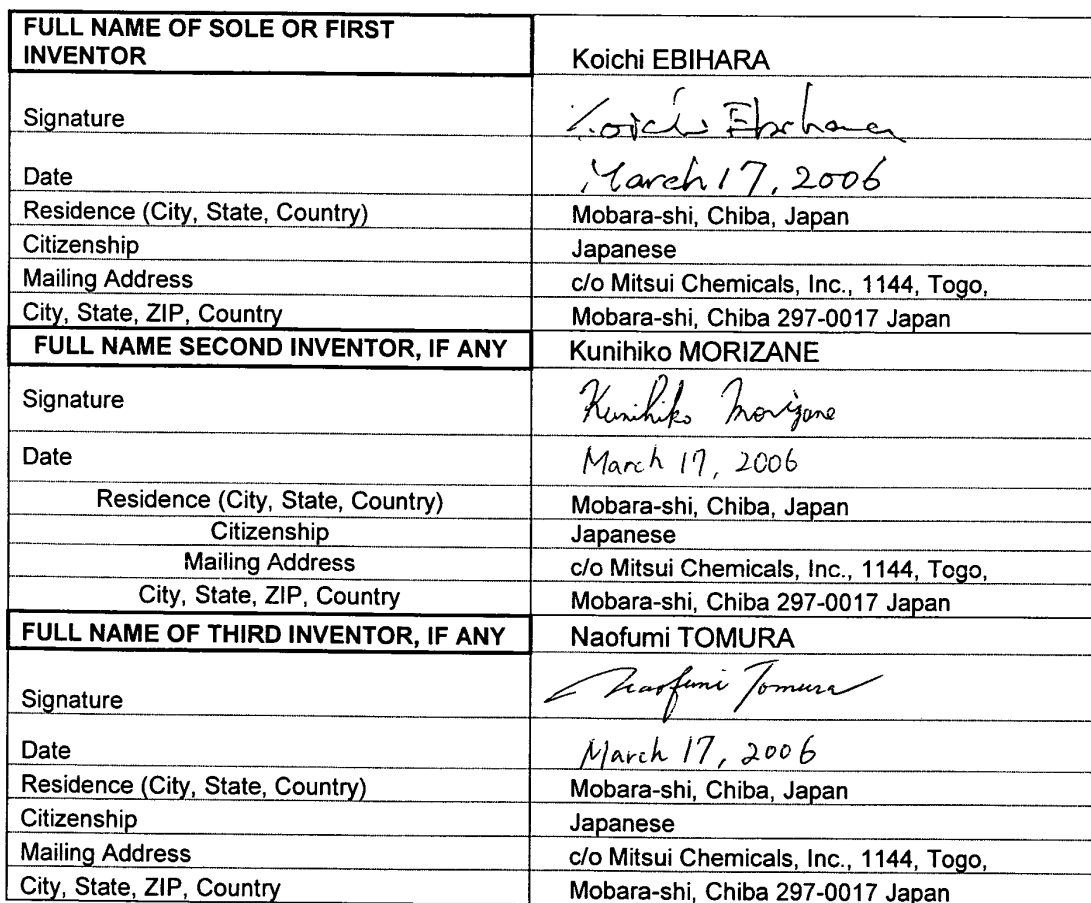 FULL NAME OF SOLE OR FIRST
INVENTOR
Koichi EBIHARA
Signature
Koichi Ebihara
Date
March 17, 2006
Residence (City, State, Country)
Mobara-shi, Chiba, Japan
Citizenship
Japanese
Mailing Address
c/o Mitsui Chemicals, Inc., 1144, Togo,
City, State, ZIP, Country
Mobara-shi, Chiba 297-0017 Japan
FULL NAME SECOND INVENTOR, IF ANY
Kunihiko MORIZANE
Signature
Kunihiko Morizane
Date
March 17, 2006
Residence (City, State, Country)
Mobara-shi, Chiba, Japan
Citizenship
Japanese
Mailing Address
c/o Mitsui Chemicals, Inc., 1144, Togo,
City, State, ZIP, Country
Mobara-shi, Chiba 297-0017 Japan
FULL NAME OF THIRD INVENTOR, IF ANY
Naofumi TOMURA
Signature
Naofumi Tomura
Date
March 17, 2006
Residence (City, State, Country)
Mobara-shi, Chiba, Japan
Citizenship
Japanese
Mailing Address
c/o Mitsui Chemicals, Inc., 1144, Togo,
City, State, ZIP, Country
Mobara-shi, Chiba 297-0017 Japan